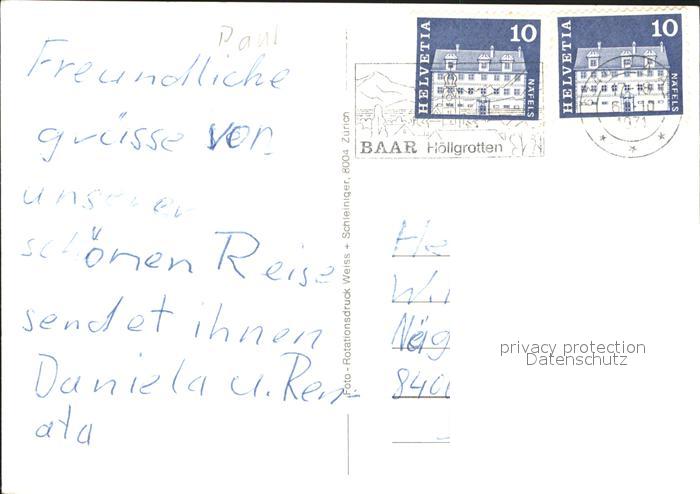 Paul
Freundliche
grüsse von
unserer
schönen Reise
sendet ihnen
Daniela u. Ren-
ata
Foto-Rotationsdruck Weiss + Schleiniger, 8004 Zürich
HELVETIA 10 NÄFELS
HELVETIA 10 NÄFELS
BAAR Höllgrotten
1971
He
Wi
Näg
8401
privacy protection
Datenschutz